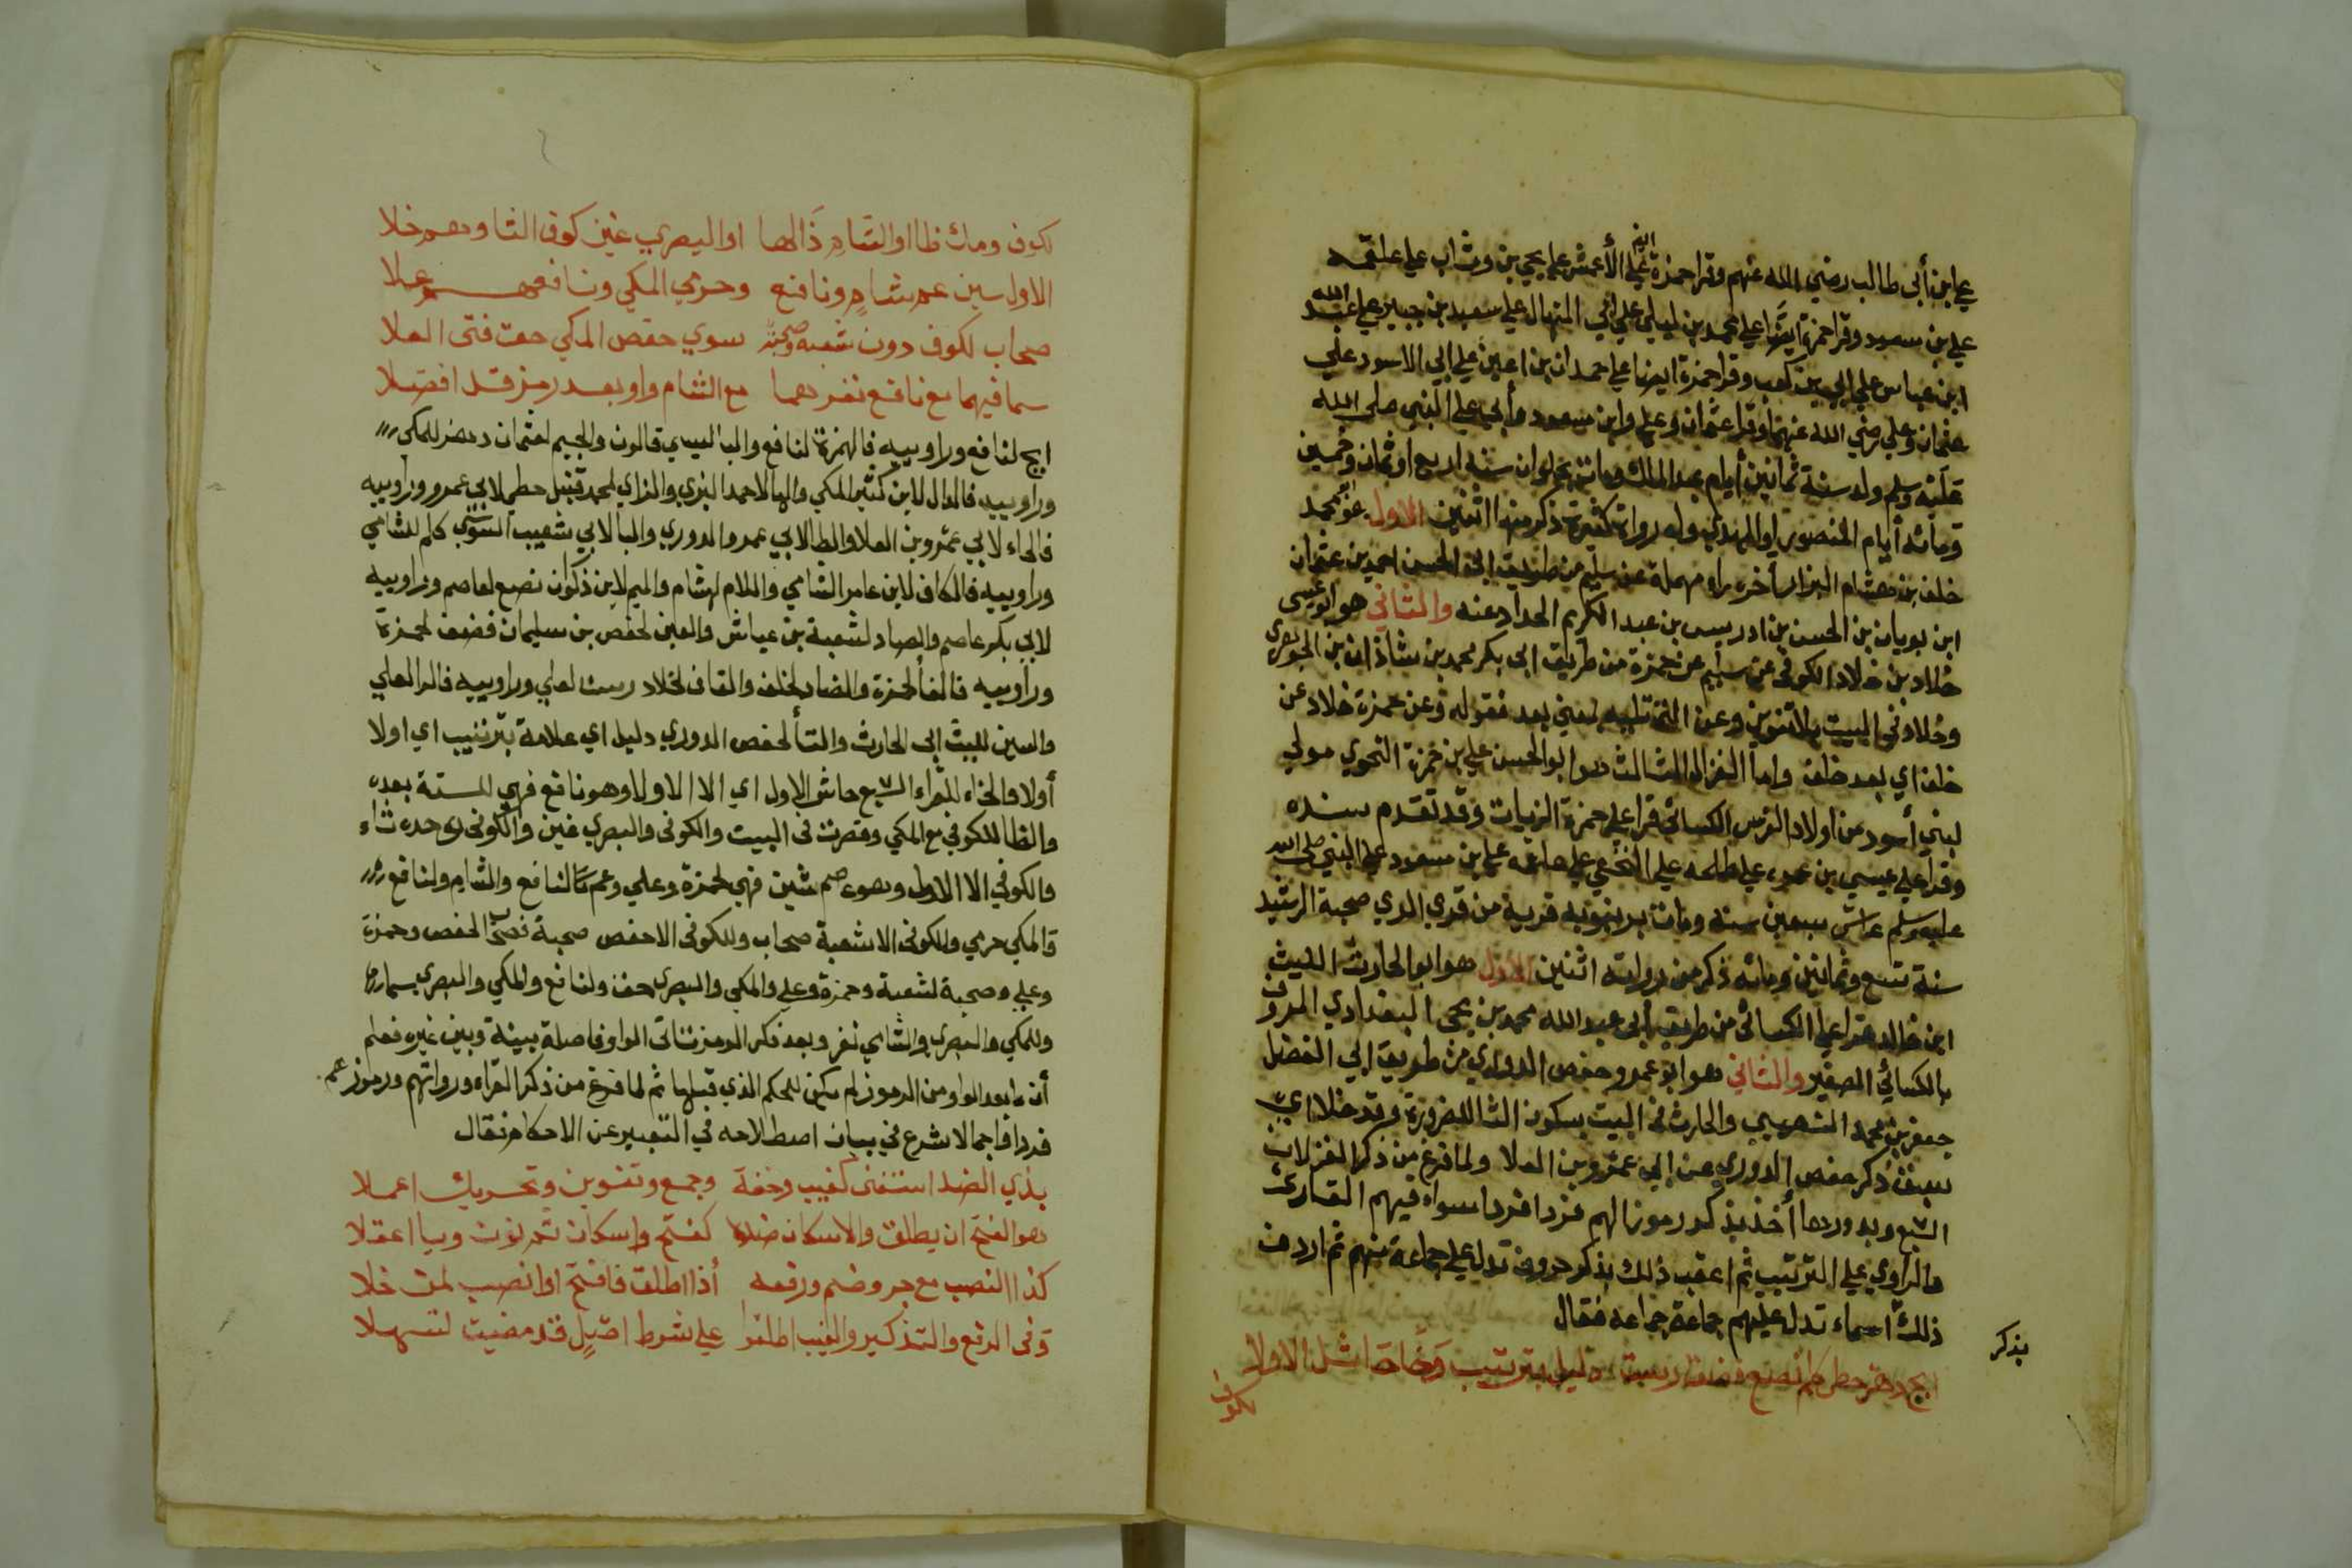 علي ابن أبي طالب رضي الله عنهم وقرا حمزة ايضا علي الأعمش علي يحيي بن وثاب علي علقمه
علي بن مسعود وقرا حمزة ايضا علي محمد بن ليلي علي أبي المنهال علي سعيد بن جبير علي عبد الله
ابن عباس علي ابي بن كعب وقرا حمزة ايضا علي حمدان بن اعين علي ابي الاسود علي
عثمان وعلي رضي الله عنهما وقرا عثمان وعلي وابن مسعود وأبي علي النبي صلي الله
عليه وسلم ولد سنة ثمانين أيام عبد الملك ومات بحلوان سنة اربع او ثمان وخمسين
ومائه أيام المنصور او المهدي وله رواة كثيرة ذكر منهم اثنين الاول هو محمد
خلف بن هشام البزار أخره راء مهملة عن سليم من طريق ابي الحسن احمد بن عثمان
ابن بويان بن الحسن بن ادريس بن عبد الكريم الحداد عنه والثاني هو ابو عيسي
خلاد بن خلاد الكوفي عن سليم عن حمزة من طريق ابي بكر محمد بن شاذان بن الجوهري
وخلاد في البيت بلا تنوين وعن التي تليه لمعني بعد فقوله وعن حمزة خلاد عن
خلف اي بعد خلف واما الغزال الثالث هو ابو الحسن علي بن حمزة النحوي مولي
لبني أسود من اولاد الفرس الكسائي قرا علي حمزة الزيات وقد تقدم سنده
وقرا علي عيسي بن عمر علي طلحه علي النخعي علي علقمه علي بن مسعود علي النبي صلي الله
عليه وسلم عاش سبعين سنة ومات برنبويه قرية من قري الري صحبة الرشيد
سنة تسع وثمانين ومائه ذكر من رواته اثنين الأول هو ابو الحارث الليث
ابن خالد قرا علي الكسائي من طريق أبي عبد الله محمد بن يحيي البغدادي المعروف
بالكسائي الصغير والثاني هو ابو عمرو حفص الدوري من طريق ابي الفضل
جعفر بن محمد النصيبي والحارث في البيت بسكون الثا للضرورة وقد خلا اي
سبق ذكر حفص الدوري عن ابي عمرو بن العلا ولما فرغ من ذكر الغزلان
السبع وبدورها أخذ يذكر رموزا لهم فردا فردا سواء فيهم القارئ
والراوي علي الترتيب ثم اعقب ذلك بذكر حروف تدل علي جماعة منهم ثم اردف
ذلك اسماء تدل عليهم جماعة جماعه فقال
بذكر
ابج دهز حطي كلم نصع فضق رست دليل بترتيب وخاحاش الاولا
لكوف
لكوف ومك ظا او الشام ذالها او البصري غين كوف الثا وهم خلا
الاول سين عم شام ونافع وحرمي المكي ونافعهم علا
صحاب لكوف دون شعبه صحبة سوي حفص المكي حق فتي العلا
سما فيهما مع نافع نفر هما مع الشام واو بعد رمز قد افصلا
ابج لنافع وراوييه فالهمزة لنافع والبا لعيسي قالون والجيم لعثمان دهز للمكي
وراوييه فالدال لابن كثير المكي والها لاحمد البزي والزاي لمحمد قنبل حطي لابي عمرو وراوييه
فالحاء لابي عمرو بن العلا والطا لابي عمر والدوري واليا لابي شعيب السوسي كلم للشامي
وراوييه فالكاف لابن عامر الشامي واللام لهشام والميم لابن ذكوان نصع لعاصم وراوييه
لابي بكر عاصم والصاد لشعبة بن عياش والعين لحفص بن سليمان فضق لحمزة
وراوييه فالفا لحمزة والضاد لخلف والقاف لخلاد رست لعلي وراوييه فالرا لعلي
والسين لليث ابي الحارث والتا لحفص الدوري دليل اي علامة بترتيب اي اولا
أولا والخاء للقراء السبع حاش الاول اي الا الاول وهو نافع فهي للستة بعده
والظا للكوفي مع المكي وقصرت في البيت والكوفي والبصري غين والكوفي وحده ثاء
والكوفي الا الاول وهو عاصم شين فهي لحمزة وعلي وعم لنافع والشام ولنافع
والمكي حرمي والكوفي الا شعبة صحاب وللكوفي الا حفص صحبة فصحاب لحفص وحمزة
وعلي وصحبة لشعبة وحمزة وعلي والمكي والبصري حق ولنافع والمكي والبصري سما
وللمكي والبصري والشامي نفر وبعد ذكر الرمز تاتي الواو فاصلة بينه وبين غيره فعلم
أن ما بعد الواو من الرموز لم يكن للحكم الذي قبلها ثم لما فرغ من ذكر القراء ورواتهم ورموزهم
فردا فاجمالا شرع في بيان اصطلاحه في التعبير عن الاحكام فقال
بذي الضد استغني كغيب وخفة وجمع وتنوين وتحريك اعملا
هو الفتح ان يطلق والاسكان ضده كفتح واسكان ثم نون ويا اعقلا
كذا النصب مع جر وضم ورفعه أذا اطلق فافتح او انصب لمن خلا
وفي الرفع والتذكير والغيب اطلقوا علي شرط اصل قد مضيت لتسهلا